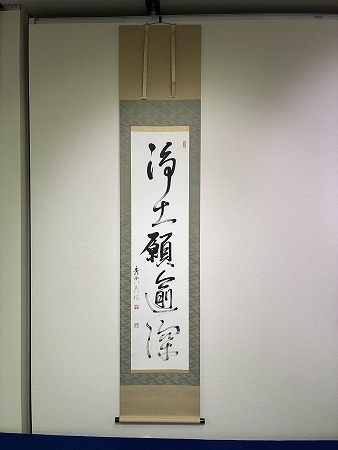 浄土願逾深